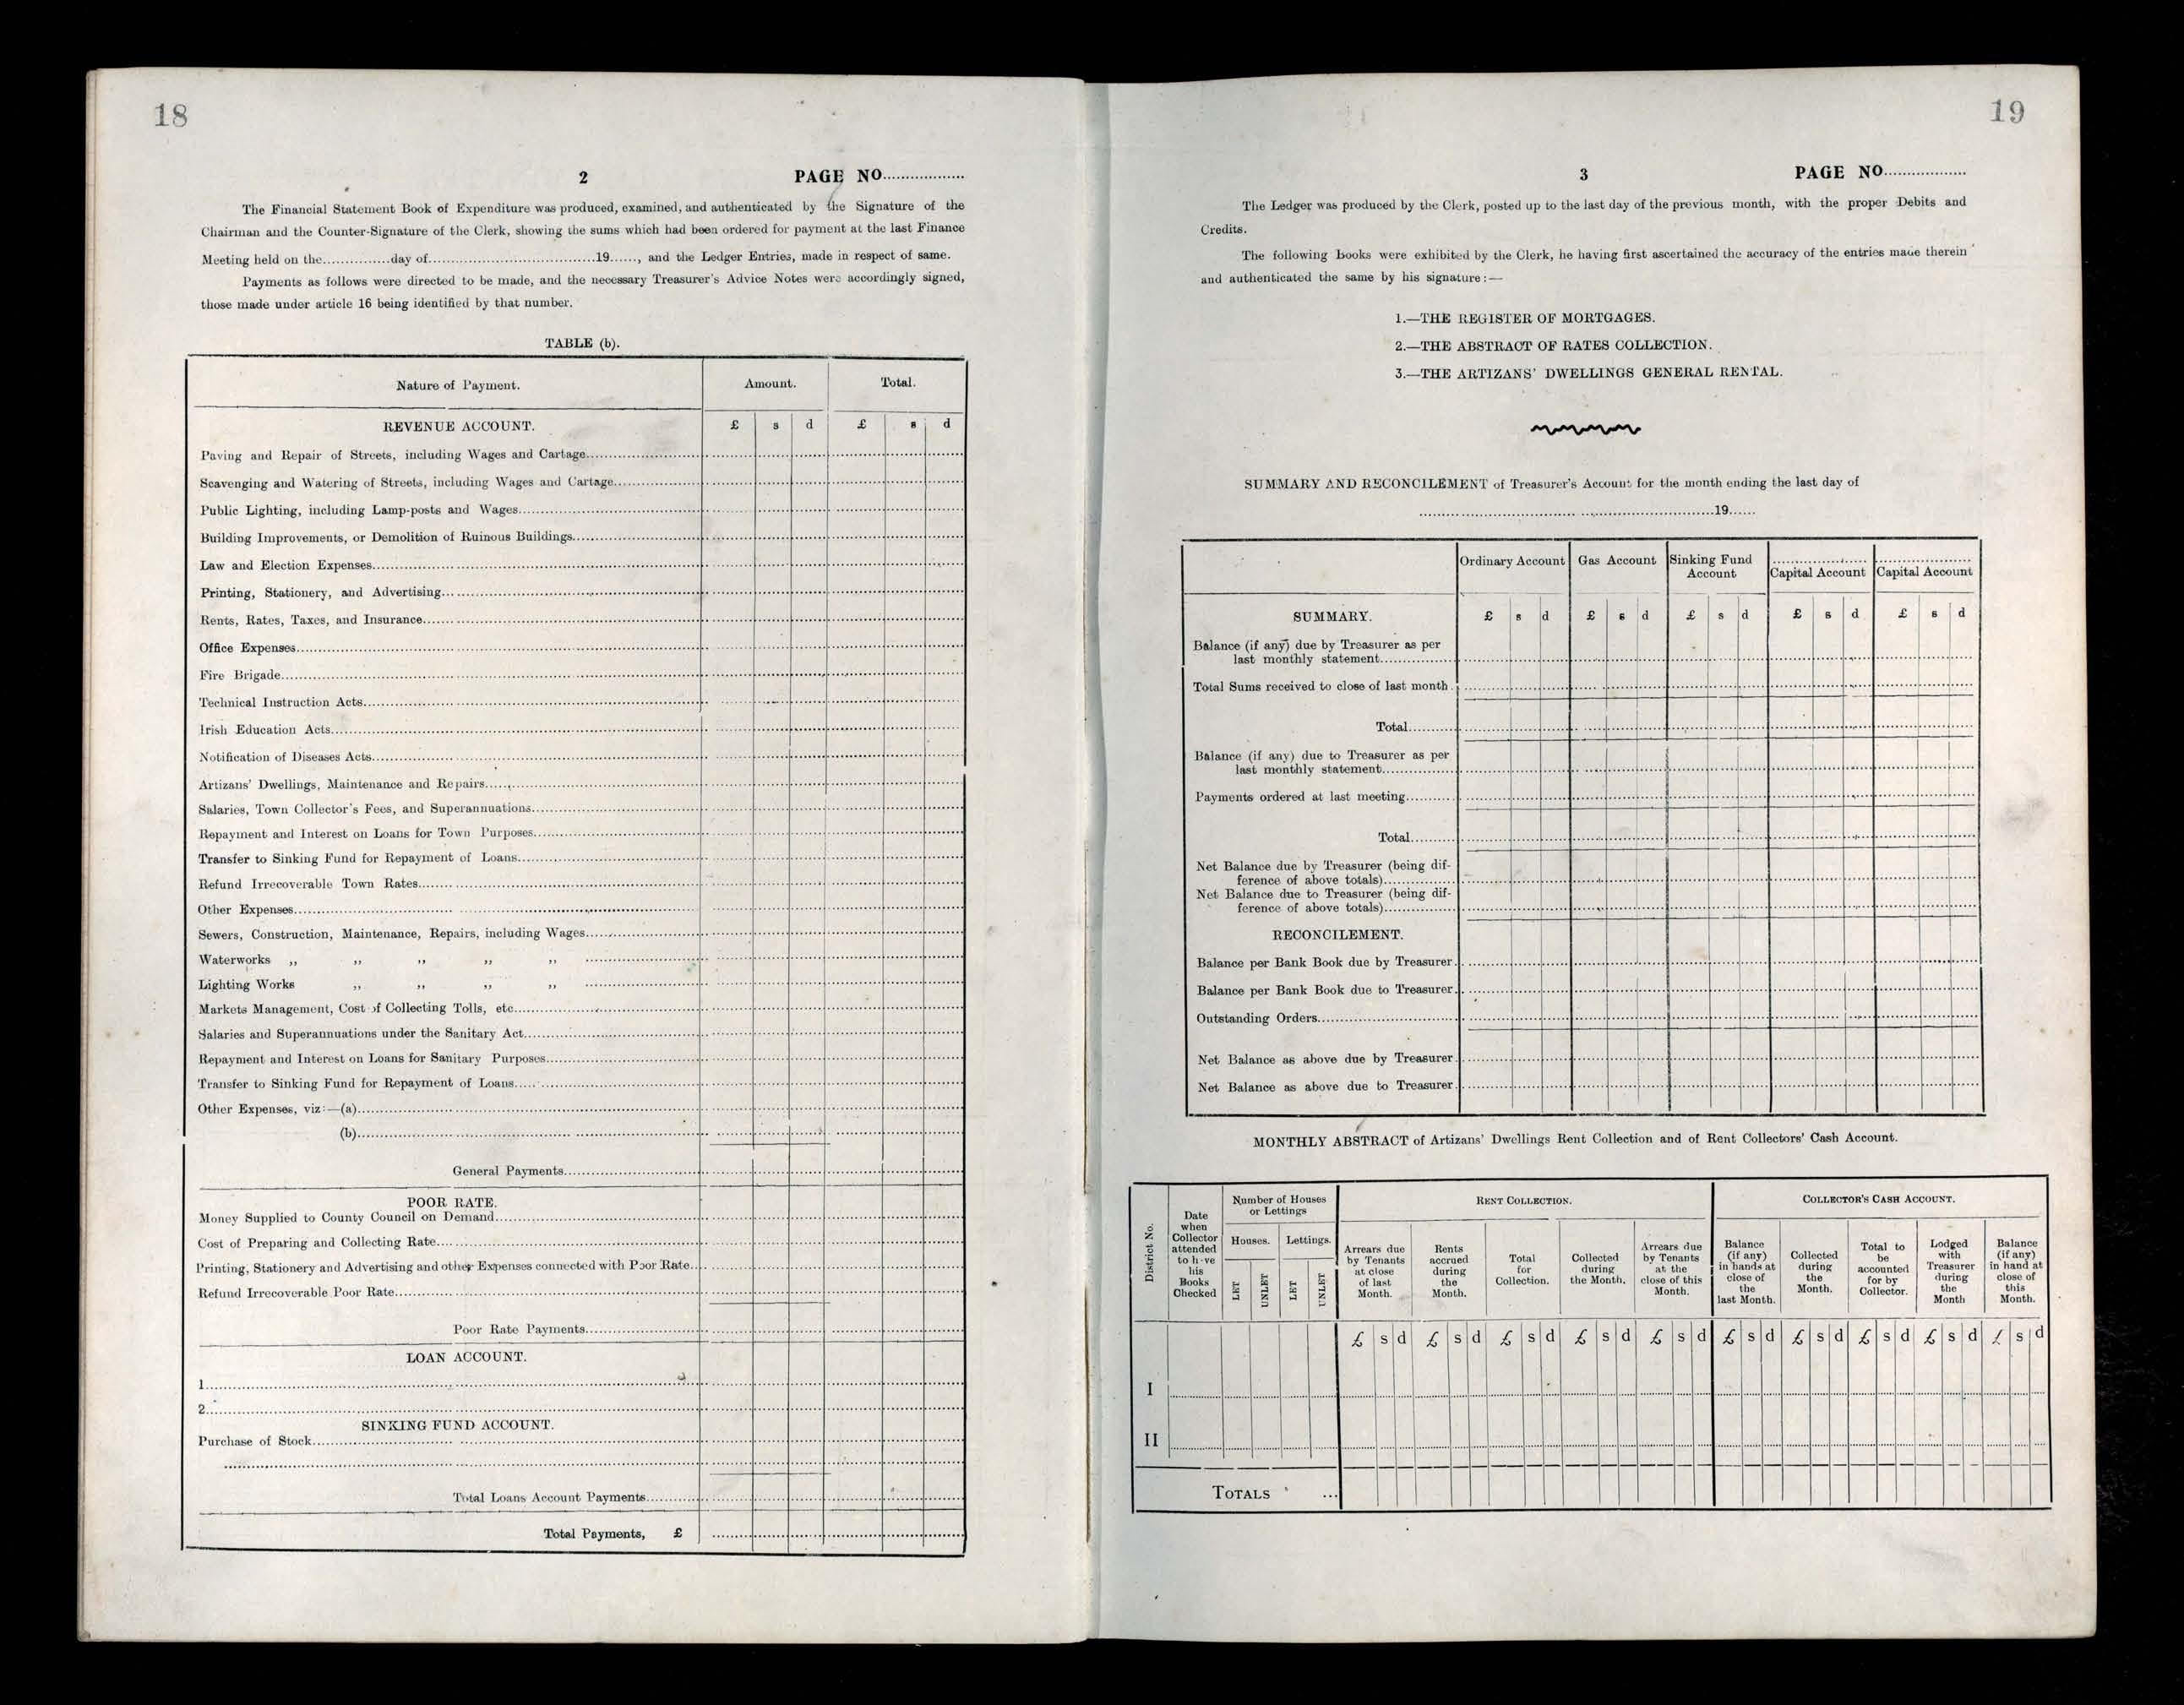 18
2 PAGE NO..................
The Financial Statement Book of Expenditure was produced, examined, and authenticated by the Signature of the
Chairman and the Counter-Signature of the Clerk, showing the sums which had been ordered for payment at the last Finance
Meeting held on the...............day of......................................19......, and the Ledger Entries, made in respect of same.
Payments as follows were directed to be made, and the necessary Treasurer's Advice Notes were accordingly signed,
those made under article 16 being identified by that number.
TABLE (b).
Nature of Payment. Amount. Total.
REVENUE ACCOUNT. £ s d £ s d
Paving and Repair of Streets, including Wages and Cartage
Scavenging and Watering of Streets, including Wages and Cartage
Public Lighting, including Lamp-posts and Wages
Building Improvements, or Demolition of Ruinous Buildings
Law and Election Expenses
Printing, Stationery, and Advertising
Rents, Rates, Taxes, and Insurance
Office Expenses
Fire Brigade
Technical Instruction Acts
Irish Education Acts
Notification of Diseases Acts
Artizans' Dwellings, Maintenance and Repairs
Salaries, Town Collector's Fees, and Superannuations
Repayment and Interest on Loans for Town Purposes
Transfer to Sinking Fund for Repayment of Loans
Refund Irrecoverable Town Rates
Other Expenses
Sewers, Construction, Maintenance, Repairs, including Wages
Waterworks ,, ,, ,, ,, ,,
Lighting Works ,, ,, ,, ,,
Markets Management, Cost of Collecting Tolls, etc
Salaries and Superannuations under the Sanitary Act
Repayment and Interest on Loans for Sanitary Purposes
Transfer to Sinking Fund for Repayment of Loans
Other Expenses, viz:—(a)
(b)
General Payments
POOR RATE.
Money Supplied to County Council on Demand
Cost of Preparing and Collecting Rate
Printing, Stationery and Advertising and other Expenses connected with Poor Rate
Refund Irrecoverable Poor Rate
Poor Rate Payments
LOAN ACCOUNT.
1
2
SINKING FUND ACCOUNT.
Purchase of Stock
Total Loans Account Payments
Total Payments, £
19
3 PAGE NO..................
The Ledger was produced by the Clerk, posted up to the last day of the previous month, with the proper Debits and
Credits.
The following Books were exhibited by the Clerk, he having first ascertained the accuracy of the entries made therein
and authenticated the same by his signature:—
1.—THE REGISTER OF MORTGAGES.
2.—THE ABSTRACT OF RATES COLLECTION.
3.—THE ARTIZANS' DWELLINGS GENERAL RENTAL.
SUMMARY AND RECONCILEMENT of Treasurer's Account for the month ending the last day of
..................................................................19......
Ordinary Account Gas Account Sinking Fund Account Capital Account Capital Account
SUMMARY. £ s d £ s d £ s d £ s d £ s d
Balance (if any) due by Treasurer as per
last monthly statement
Total Sums received to close of last month
Total
Balance (if any) due to Treasurer as per
last monthly statement
Payments ordered at last meeting
Total
Net Balance due by Treasurer (being dif-
ference of above totals)
Net Balance due to Treasurer (being dif-
ference of above totals)
RECONCILEMENT.
Balance per Bank Book due by Treasurer
Balance per Bank Book due to Treasurer
Outstanding Orders
Net Balance as above due by Treasurer
Net Balance as above due to Treasurer
MONTHLY ABSTRACT of Artizans' Dwellings Rent Collection and of Rent Collectors' Cash Account.
District No.
Date when Collector attended to h ve his Books Checked
Number of Houses or Lettings
Houses. Lettings.
LET UNLET LET UNLET
RENT COLLECTION.
Arrears due by Tenants at close of last Month.
Rents accrued during the Month.
Total for Collection.
Collected during the Month.
Arrears due by Tenants at the close of this Month.
COLLECTOR'S CASH ACCOUNT.
Balance (if any) in hands at close of the last Month.
Collected during the Month.
Total to be accounted for by Collector.
Lodged with Treasurer during the Month
Balance (if any) in hand at close of this Month.
£ s d £ s d £ s d £ s d £ s d £ s d £ s d £ s d £ s d £ s d
I
II
TOTALS ...